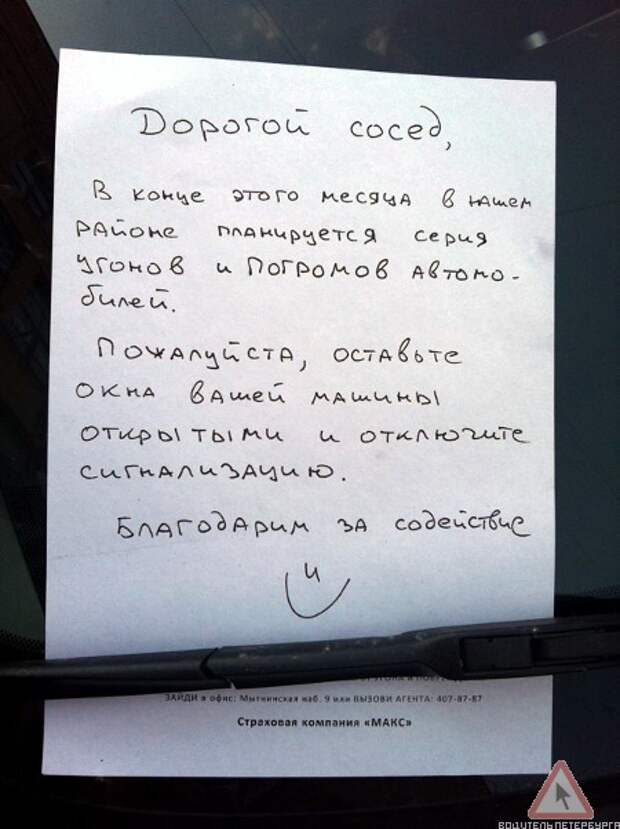 Дорогой сосед,
В конце этого месяца в нашем
районе планируется серия
угонов и погромов автомо-
билей.
Пожалуйста, оставьте
окна вашей машины
открытыми и отключите
сигнализацию.
Благодарим за содействие
ЗАЙДИ в офис: Мытнинская наб. 9 или ВЫЗОВИ АГЕНТА: 407-87-87
Страховая компания «МАКС»
ВОДИТЕЛЬ ПЕТЕРБУРГА